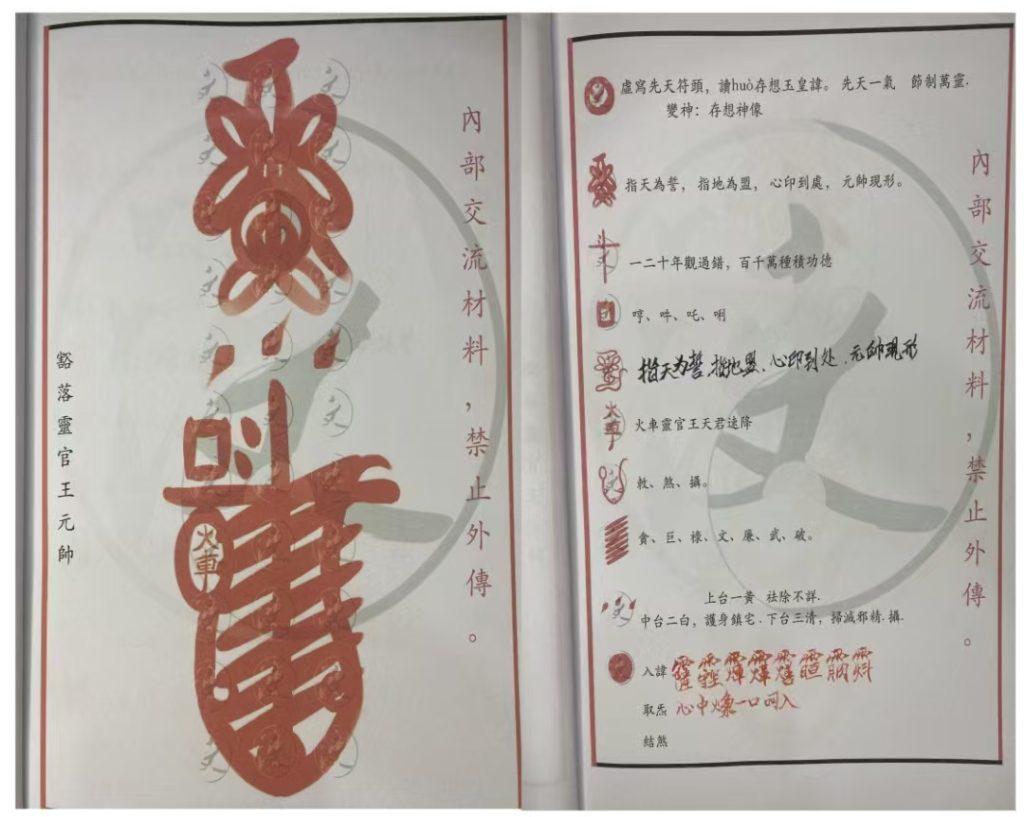 內部交流材料，禁止外傳。
豁落靈官王元帥
火車
內部交流材料，禁止外傳。
虛寫先天符頭，讀huò存想玉皇諱。 先天一氣 節制萬靈.
變神：存想神像
指天為誓，指地為盟，心印到處，元帥現形。
一二十年觀過錯，百千萬種積功德
哼、吽、吒、唎
指天为誓.指地盟、心印到处.元帅現形
火車靈官王天君速降
火車
敕、煞、攝。
貪、巨、祿、文、廉、武、破。
上台一黃 祛除不詳.
中台二白，護身鎮宅.下台三清，掃滅邪精.攝.
入諱
取炁 心中火 一口呵入
結煞